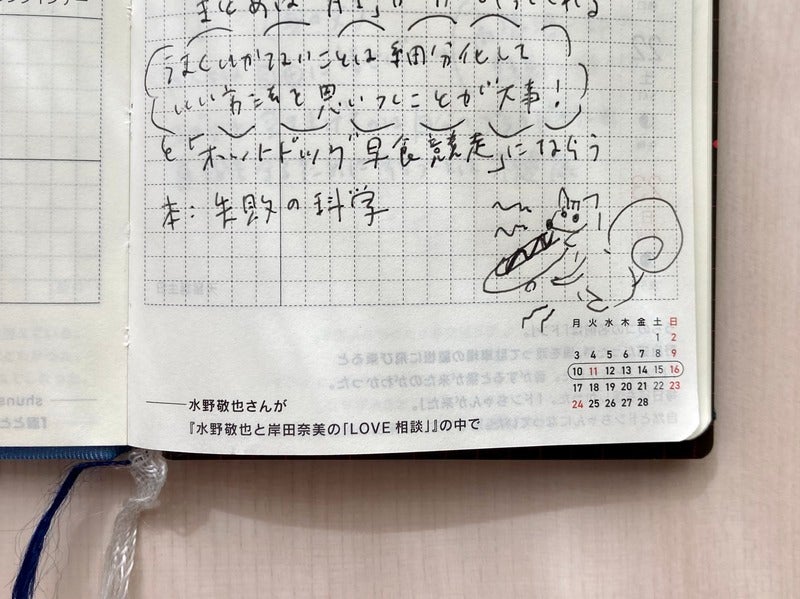 まとめは
うまくいかないことは細分化して
いい方法を思いつくことが大事！
を「ホットドッグ早食競走」にならう
本：失敗の科学
月 火 水 木 金 土 日
1 2
3 4 5 6 7 8 9
10 11 12 13 14 15 16
17 18 19 20 21 22 23
24 25 26 27 28
水野敬也さんが
『水野敬也と岸田奈美の「LOVE 相談」』の中で